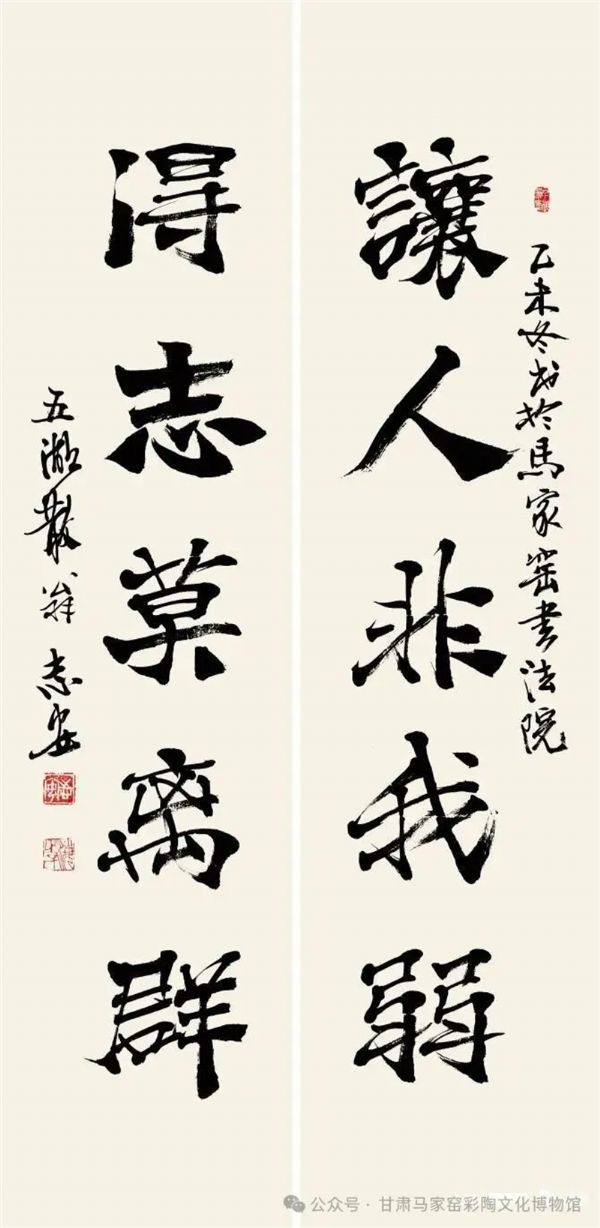 乙未冬书於馬家窑书法院
讓人非我弱
得志莫离群
五湖散翁志安
公众号·甘肃马家窑彩陶文化博物馆